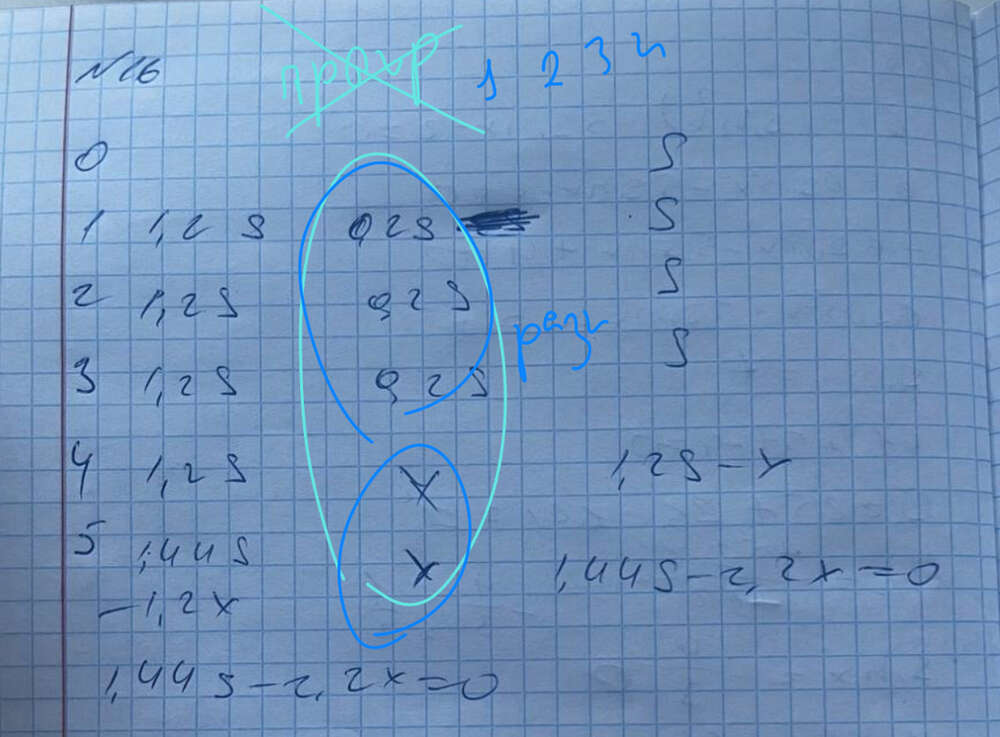 N16 1 2 3 4
0 S
1 1,2 S 0,2 S S
2 1,2 S 0,2 S S
3 1,2 S 0,2 S S
4 1,2 S X 1,2 S - X
5 1,44 S X 1,44 S - 2,2 X = 0
- 1,2 X
1,44 S - 2,2 X = 0